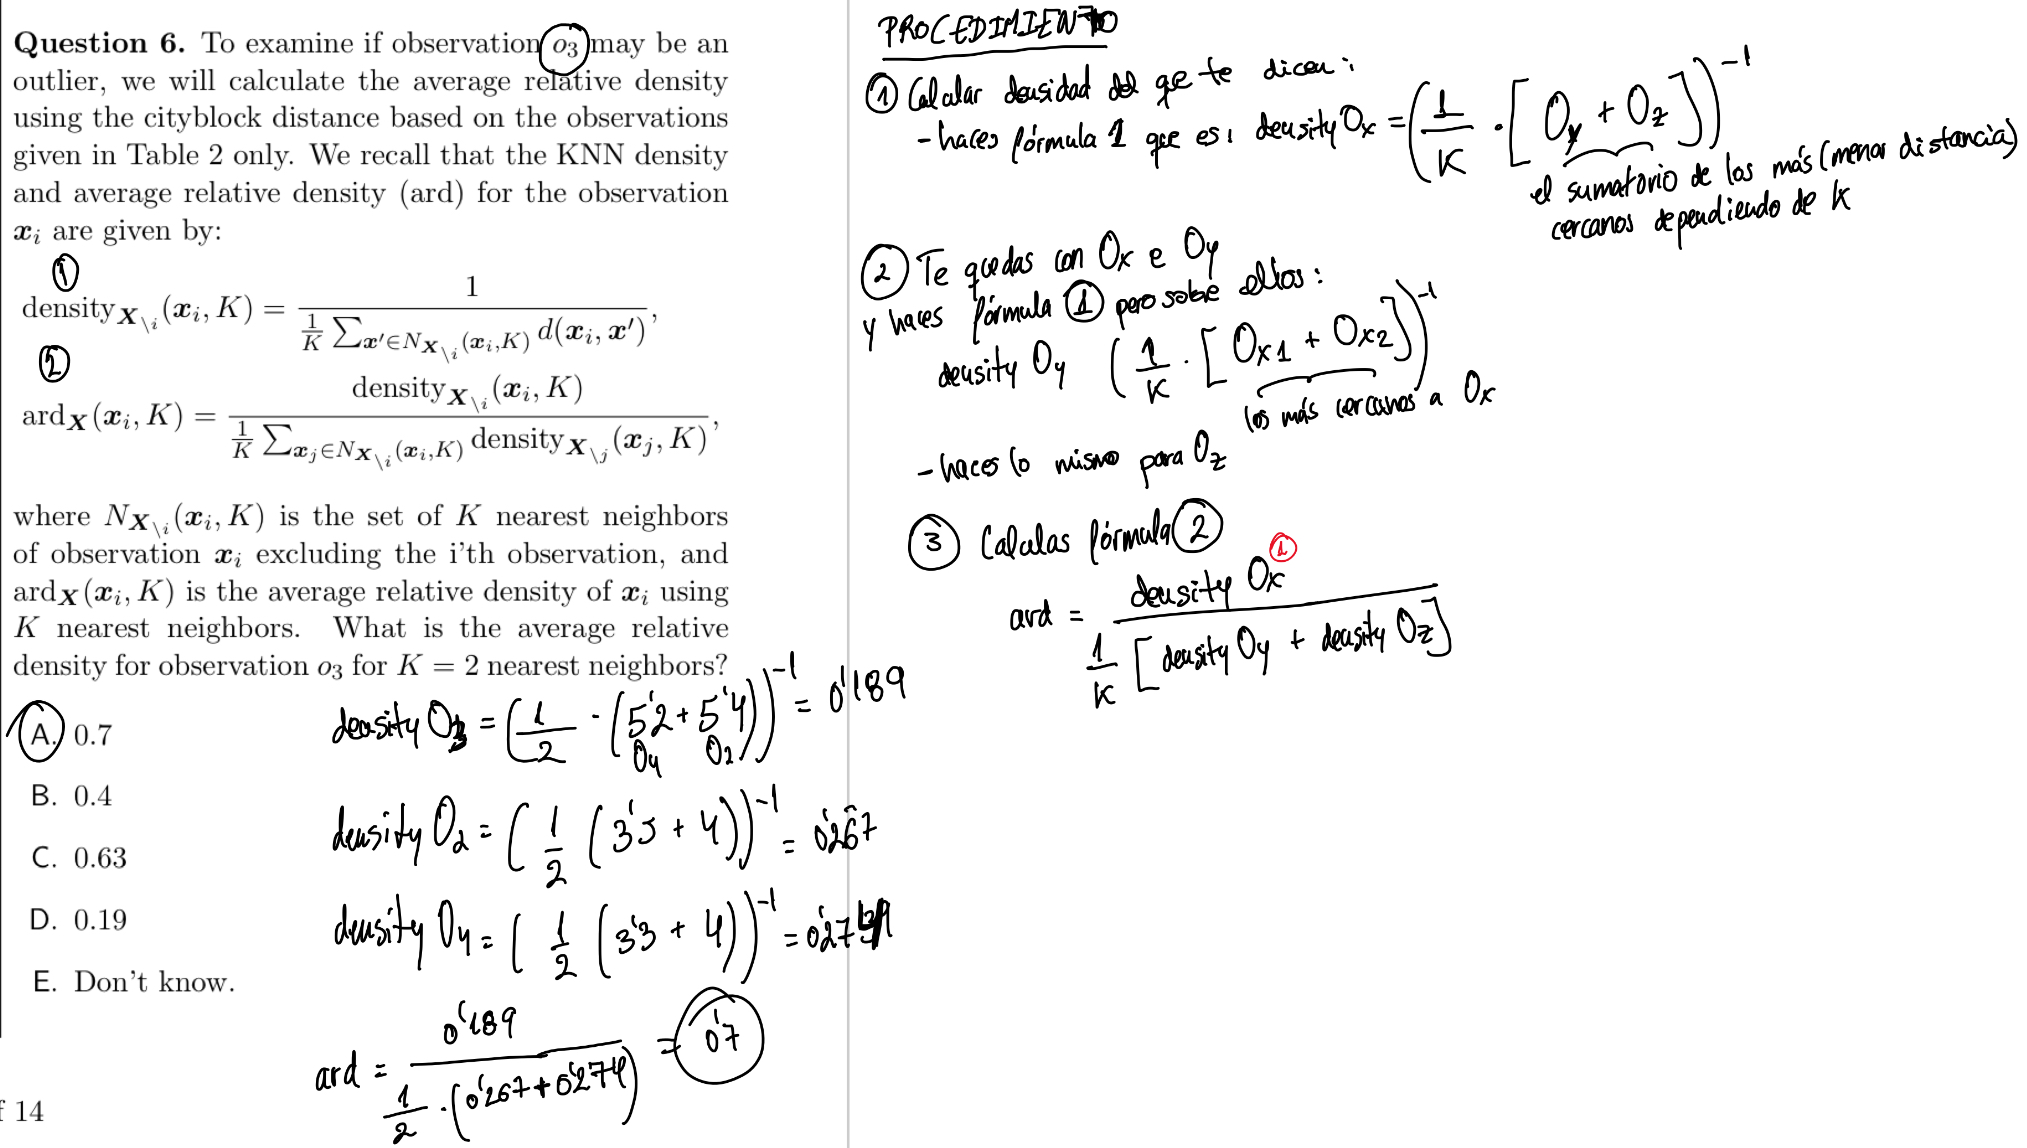 Question 6. To examine if observation o₃ may be an
outlier, we will calculate the average relative density
using the cityblock distance based on the observations
given in Table 2 only. We recall that the KNN density
and average relative density (ard) for the observation
xᵢ are given by:
①
density_{X\i}(xᵢ, K) = 1 / ( 1/K ∑_{x'∈N_{X\i}(xᵢ,K)} d(xᵢ, x') ),
②
ard_X(xᵢ, K) = density_{X\i}(xᵢ, K) / ( 1/K ∑_{xⱼ∈N_{X\i}(xᵢ,K)} density_{X\j}(xⱼ, K) ),
where N_{X\i}(xᵢ, K) is the set of K nearest neighbors
of observation xᵢ excluding the i'th observation, and
ard_X(xᵢ, K) is the average relative density of xᵢ using
K nearest neighbors. What is the average relative
density for observation o₃ for K = 2 nearest neighbors?
A. 0.7
B. 0.4
C. 0.63
D. 0.19
E. Don't know.
f 14
density O₃ = (1/2 · (5'2 + 5'4))⁻¹ = 0'189
O₄ O₂
density O₂ = (1/2 (3'5 + 4))⁻¹ = 0'267
density O₄ = (1/2 (3'3 + 4))⁻¹ = 0'274
ard = 0'189 / ( 1/2 · (0'267 + 0'274) ) = 0'7
PROCEDIMIENTO
① Calcular densidad del que te dicen:
- haces fórmula 1 que es: density Ox = (1/K · [Oy + Oz])⁻¹
el sumatorio de los más (menor distancia)
cercanos dependiendo de K
② Te quedas con Ox e Oy
y haces fórmula ① pero sobre ellos:
density Oy (1/K · [Ox1 + Ox2])⁻¹
los más cercanos a Ox
- haces lo mismo para Oz
③ Calculas fórmula ②
ard = density Ox ① / ( 1/K [density Oy + density Oz] )